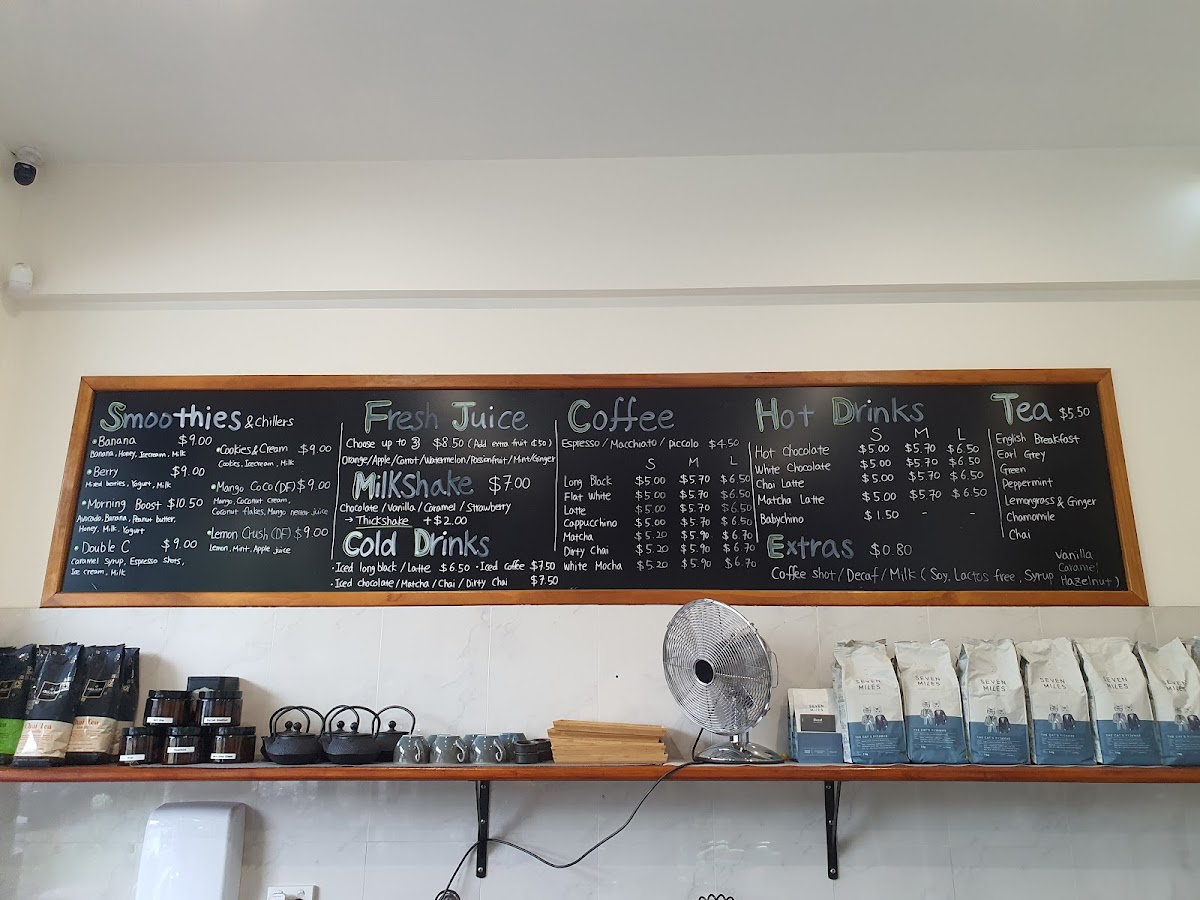 Smoothies & Chillers
• Banana $9.00
Banana, Honey, Icecream, Milk
• Berry $9.00
Mixed berries, Yogurt, Milk
• Morning Boost $10.50
Avocado, Banana, Peanut butter,
Honey, Milk, Yogurt
• Double C $9.00
Caramel Syrup, Espresso Shots,
Ice cream, Milk
• Cookies & Cream $9.00
Cookies, Icecream, Milk
• Mango CoCo (DF) $9.00
Mango, Coconut cream,
Coconut flakes, Mango nectar juice
• Lemon Crush (DF) $9.00
Lemon, Mint, Apple juice
Fresh Juice
Choose up to 3 $8.50 (Add extra fruit
Orange/Apple/Carrot/Watermelon/Passionfruit/Mint/Ginger
Milkshake $7.00
Chocolate / Vanilla / Caramel / Strawberry
→ Thickshake +$2.00
Cold Drinks
• Iced long black / Latte $6.50 • Iced coffee $7.50
• Iced chocolate / Matcha / Chai / Dirty Chai $7.50
Coffee
Espresso / Macchiato / piccolo $4.50
S M L
Long Black $5.00 $5.70 $6.50
Flat White $5.00 $5.70 $6.50
Latte $5.00 $5.70 $6.50
Cappucchino $5.00 $5.70 $6.50
Matcha $5.20 $5.90 $6.70
Dirty Chai $5.20 $5.90 $6.70
White Mocha $5.20 $5.90 $6.70
Hot Drinks
S M L
Hot Chocolate $5.00 $5.70 $6.50
White Chocolate $5.00 $5.70 $6.50
Chai Latte $5.00 $5.70 $6.50
Matcha Latte $5.00 $5.70 $6.50
Babychino $1.50 - -
Extras $0.80
Coffee shot / Decaf / Milk (Soy, Lactos free, Syrup
Vanilla
Caramel
Hazelnut)
Tea $5.50
English Breakfast
Earl Grey
Green
Peppermint
Lemongrass & Ginger
Chamomile
Chai
Chai Tea
SEVEN
MILES
SEVEN
MILES
SEVEN
MILES
SEVEN
MILES
SEVEN
MILES
SEVEN
MILES
SEVEN
MILES